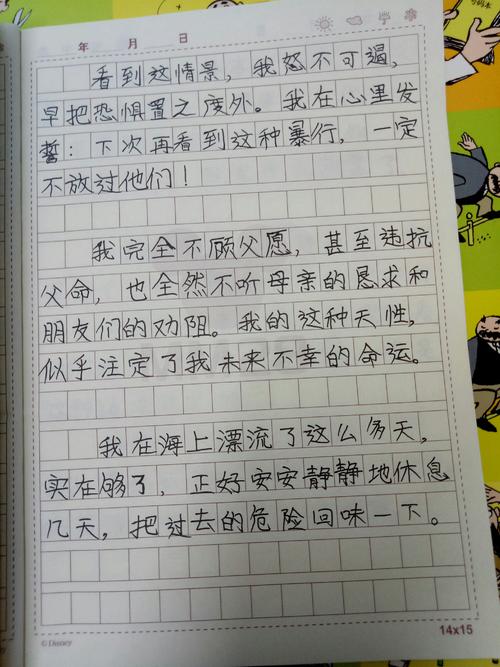 年 月 日
看到这情景，我怒不可遏，
早把恐惧置之度外。我在心里发
誓：下次再看到这种暴行，一定
不放过他们！
我完全不顾父愿，甚至违抗
父命，也全然不听母亲的恳求和
朋友们的劝阻。我的这种天性，
似乎注定了我未来不幸的命运。
我在海上漂流了这么多天，
实在够了，正好安安静静地休息
几天，把过去的危险回味一下。
14x15
©Disney